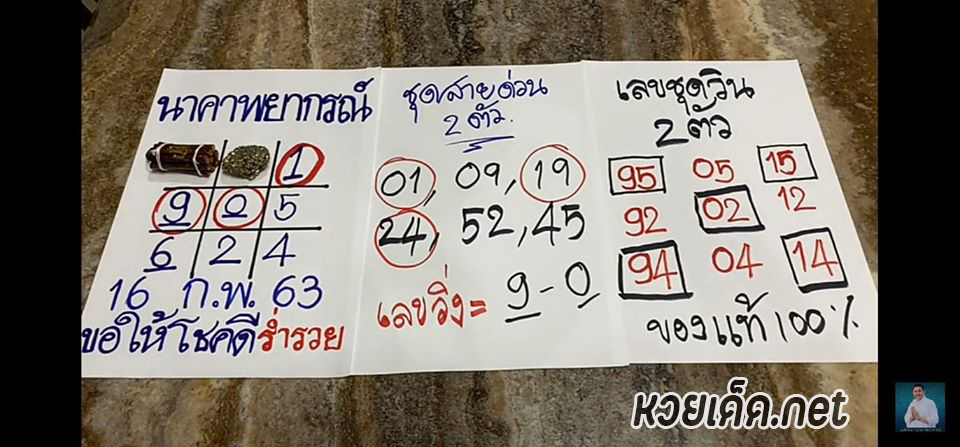 นาคาพยากรณ์
1
9 0 5
6 2 4
16 ก.พ. 63
ขอให้โชคดีร่ำรวย
ชุดสายด่วน
2 ตัว.
01, 09, 19
24, 52, 45
เลขวิ่ง = 9 - 0
เลขชุดวิน
2 ตัว
95 05 15
92 02 12
94 04 14
ของแท้ 100%
หวยเด็ด.net